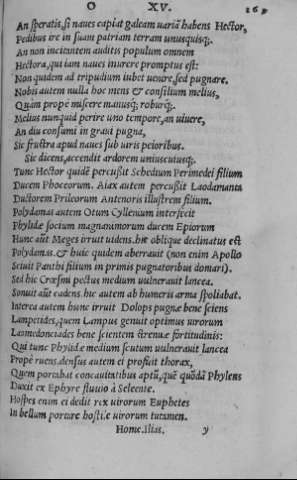 O XV. 169
An speratis, si naues capiat galeam uariā habens Hector,
Pedibus ire in suam patriam terram unusquisq;.
An non incitentem auditis populum omnem
Hectora, qui iam naues inurere promptus est:
Non quidem ad tripudium iubet uenire, sed pugnare.
Nobis autem nulla hoc mens & consilium melius,
Quàm propè miscere manusq; roburq;.
Melius nunquid perire uno tempore, an uiuere,
An diu consumi in graui pugna,
Sic frustra apud naues sub uiris peioribus.
Sic dicens, accendit ardorem uniuscuiusq;.
Tunc Hector quidē percußit Schedium Perimedei filium
Ducem Phoceorum. Aiax autem percußit Laodamanta
Ductorem Prileorum Antenoris illustrem filium.
Polydamas autem Otum Cyllenium interfecit
Phylidæ socium magnanimorum ducem Epiorum
Hunc aūt Meges irruit uidens. hic oblique declinatus est
Polydamas. & huic quidem aberrauit (non enim Apollo
Sciuit Panthi filium in primis pugnatoribus domari).
Sed hic Crœsmi pectus medium uulnerauit lancea.
Sonuit aūt cadens. hic autem ab humeris arma spoliabat.
Interea autem hunc irruit Dolops pugnæ bene sciens
Lampetides, quem Lampus genuit optimus uirorum
Laomedonciades bene scientem strenuæ fortitudinis:
Qui tunc Phylidæ medium scutum uulnerauit lancea
Propè ruens. densus autem ei profuit thorax,
Quem portabat concauitatibus aptū, quē quōdā Phylens
Duxit ex Ephyre fluuio à Seleente.
Hospes enim ei dedit rex uirorum Euphetes
In bellum portare hostiæ uirorum tutamen.
Home. Ilias. y